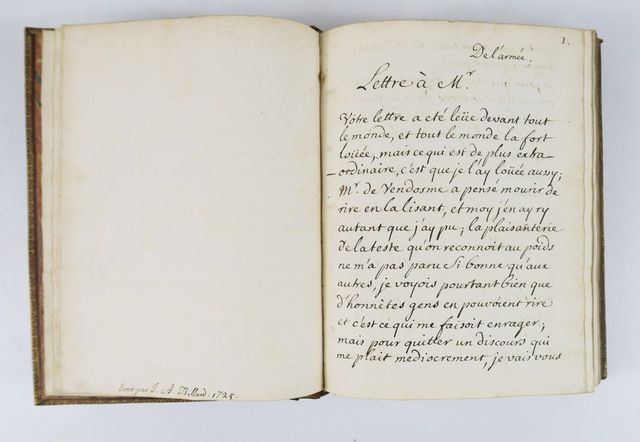 Ecrit par J. A. Billard. 1725.
1.
De l'armée.
Lettre à Mr.
Votre lettre a eté leüe devant tout
le monde, et tout le monde la fort
loüée, mais ce qui est de plus extra-
ordinaire, c'est que je l'ay loüée aussy;
Mr. de Vendosme a pensé mourir de
rire en la lisant, et moy j'en ay ry
autant que j'ay pu; la plaisanterie
de la teste qu'on reconnoit au poids
ne m'a pas paru si bonne qu'aux
autres, je voyois pourtant bien que
d'honnêtes gens en pouvoient rire
et c'est ce qui me faisoit enrager;
mais pour quitter un discours qui
me plait mediocrement, je vais vous